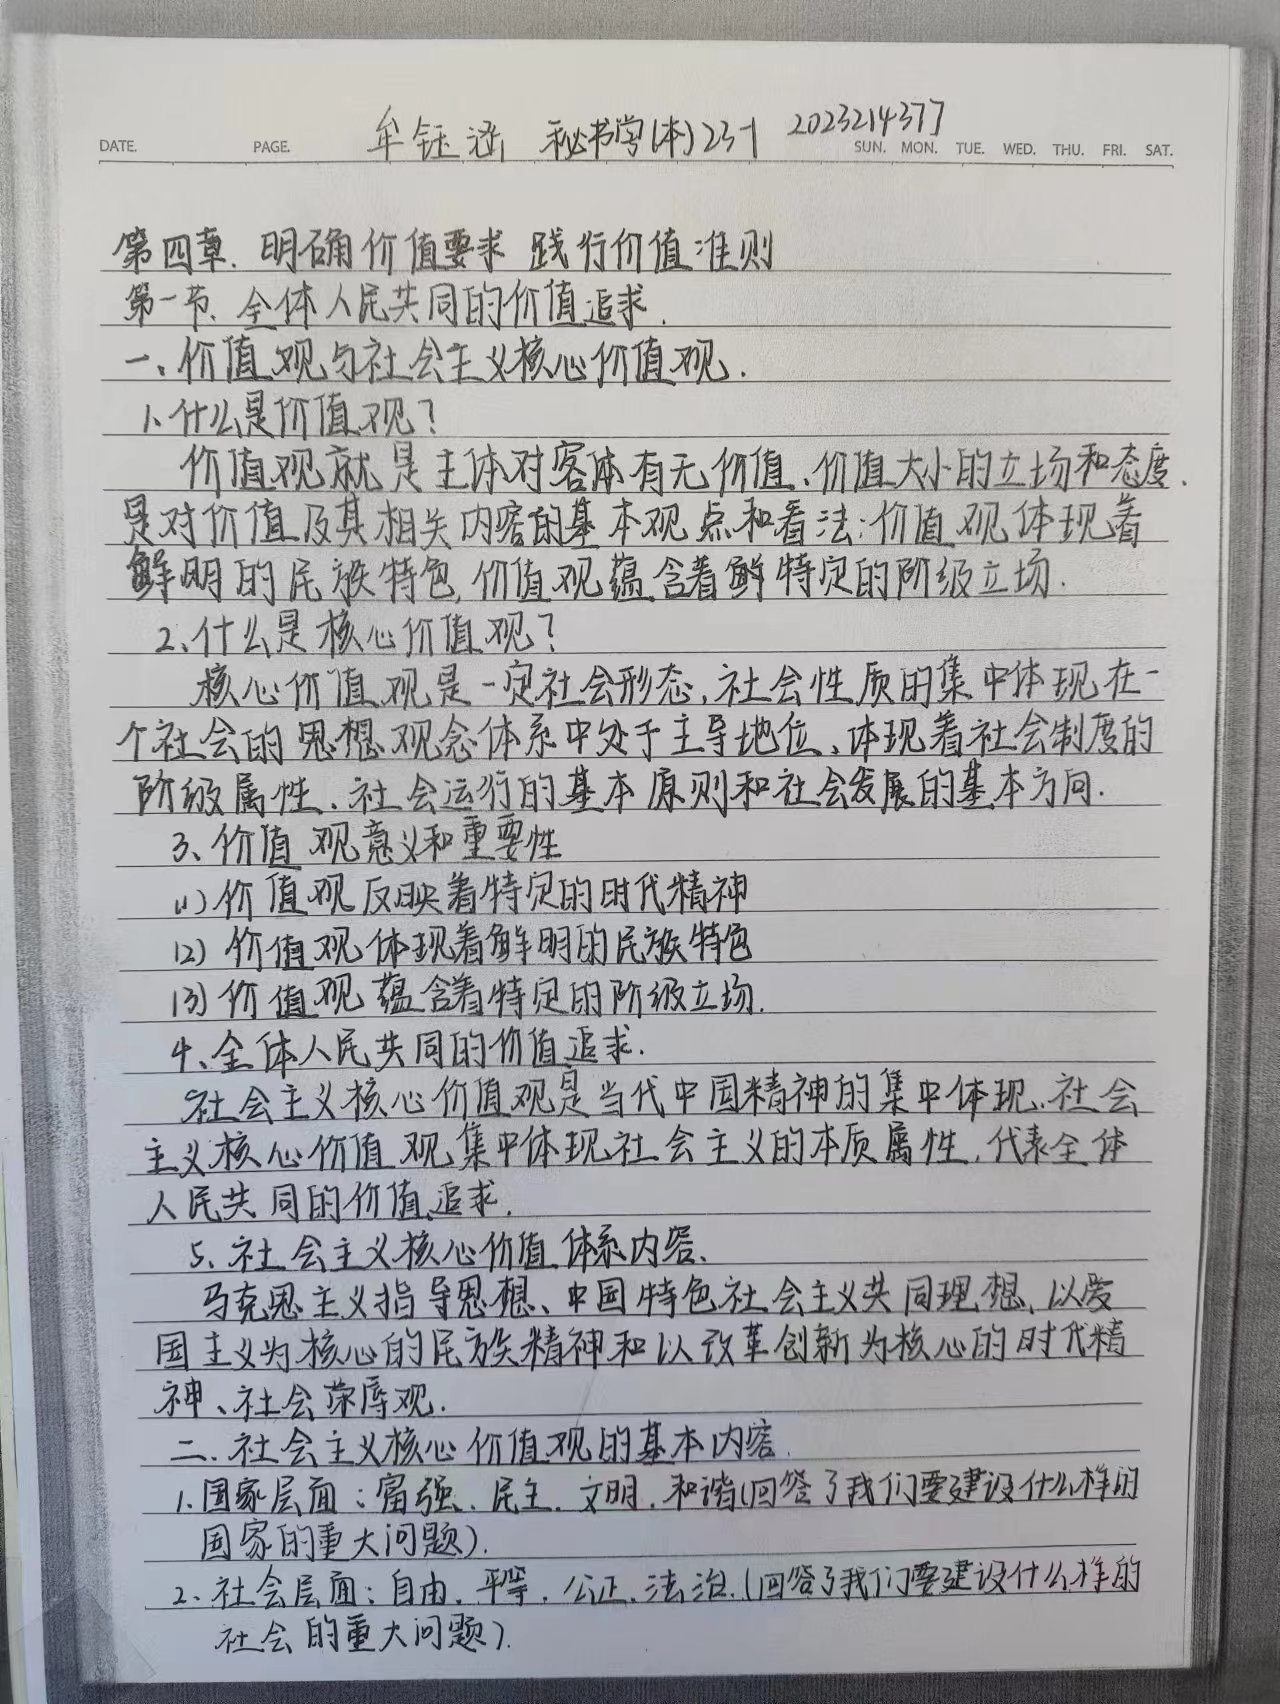 牟钰涵 秘书学(本)23-1 2023214377
DATE. PAGE. SUN. MON. TUE. WED. THU. FRI. SAT.
第四章. 明确价值要求 践行价值准则
第一节、全体人民共同的价值追求.
一、价值观与社会主义核心价值观.
1.什么是价值观?
价值观就是主体对客体有无价值、价值大小的立场和态度.
是对价值及其相关内容的基本观点和看法;价值观体现着
鲜明的民族特色,价值观蕴含着特定的阶级立场.
2、什么是核心价值观?
核心价值观是一定社会形态,社会性质的集中体现在一
个社会的思想观念体系中处于主导地位、体现着社会制度的
阶级属性、社会运行的基本原则和社会发展的基本方向.
3、价值观意义和重要性
(1)价值观反映着特定的时代精神
(2)价值观体现着鲜明的民族特色
(3)价值观蕴含着特定的阶级立场.
4、全体人民共同的价值追求.
社会主义核心价值观是当代中国精神的集中体现、社会
主义核心价值观集中体现社会主义的本质属性,代表全体
人民共同的价值追求.
5、社会主义核心价值体系内容、
马克思主义指导思想、中国特色社会主义共同理想、以爱
国主义为核心的民族精神和以改革创新为核心的时代精
神、社会荣辱观.
二、社会主义核心价值观的基本内容.
1.国家层面:富强、民主、文明、和谐(回答了我们要建设什么样的
国家的重大问题).
2、社会层面:自由、平等、公正、法治.(回答了我们要建设什么样的
社会的重大问题).